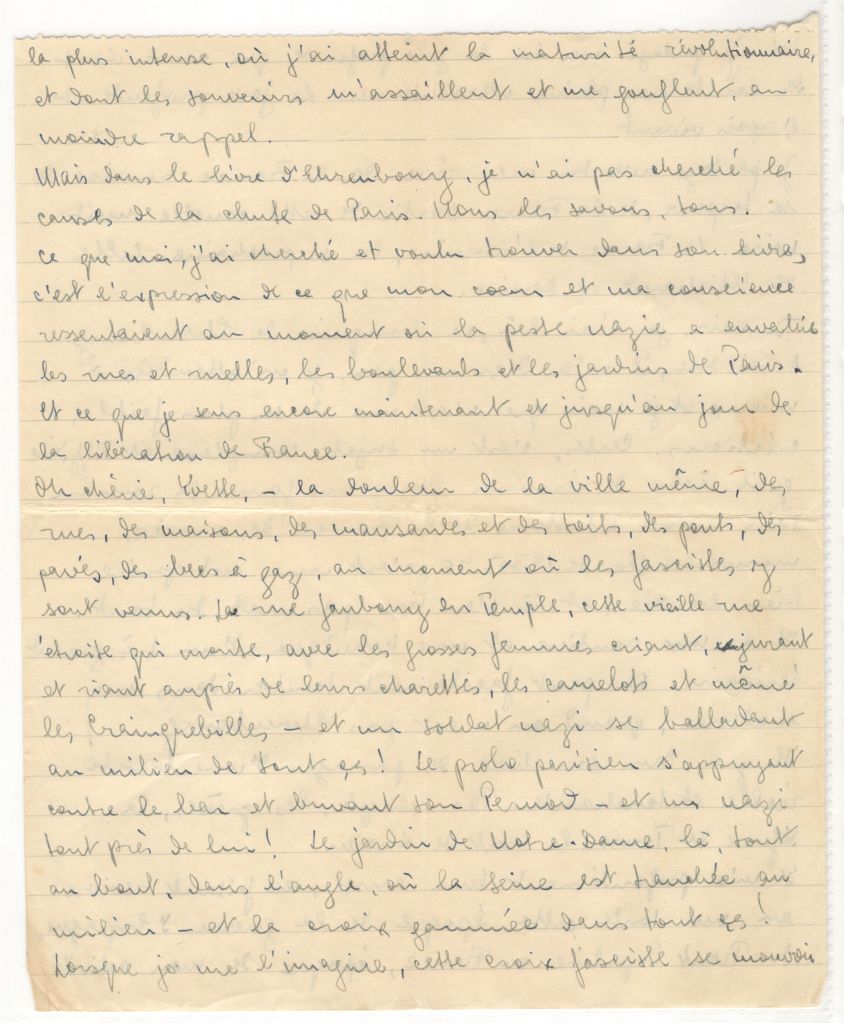 la plus intense, où j'ai atteint la maturité révolutionnaire,
et dont les souvenirs m'assaillent et me gonflent, au
moindre rappel.
Mais dans le livre d'Ehrenbourg, je n'ai pas cherché les
causes de la chute de Paris. Nous les savons, tous!
Ce que moi, j'ai cherché et voulu trouver dans son livre,
c'est l'expression de ce que mon coeur et ma conscience
ressentaient au moment où la peste nazie a envahie
les rues et ruelles, les boulevards et les jardins de Paris.
Et ce que je sens encore maintenant et jusqu'au jour de
la libération de France.
Oh chérie, Yvette, – la douleur de la ville même, des
rues, des maisons, des mansardes et des toits, des ponts, des
pavés, des becs à gaz, au moment où les fascistes y
sont venus. La rue Faubourg du Temple, cette vieille rue
étroite qui monte, avec les grosses femmes criant, jurant
et riant auprès de leurs charettes, les camelots et même
les Crainquebilles – et un soldat nazi se balladant
au milieu de tout ça! Le prolo parisien s'appuyant
contre le bar et buvant son Pernod – et un nazi
tout près de lui! Le jardin de Notre-Dame, là, tout
au bout, dans l'angle, où la Seine est tranchée au
milieu – et la croix gammée dans tout ça!
Lorsque je me l'imagine, cette croix fasciste se mouvoir